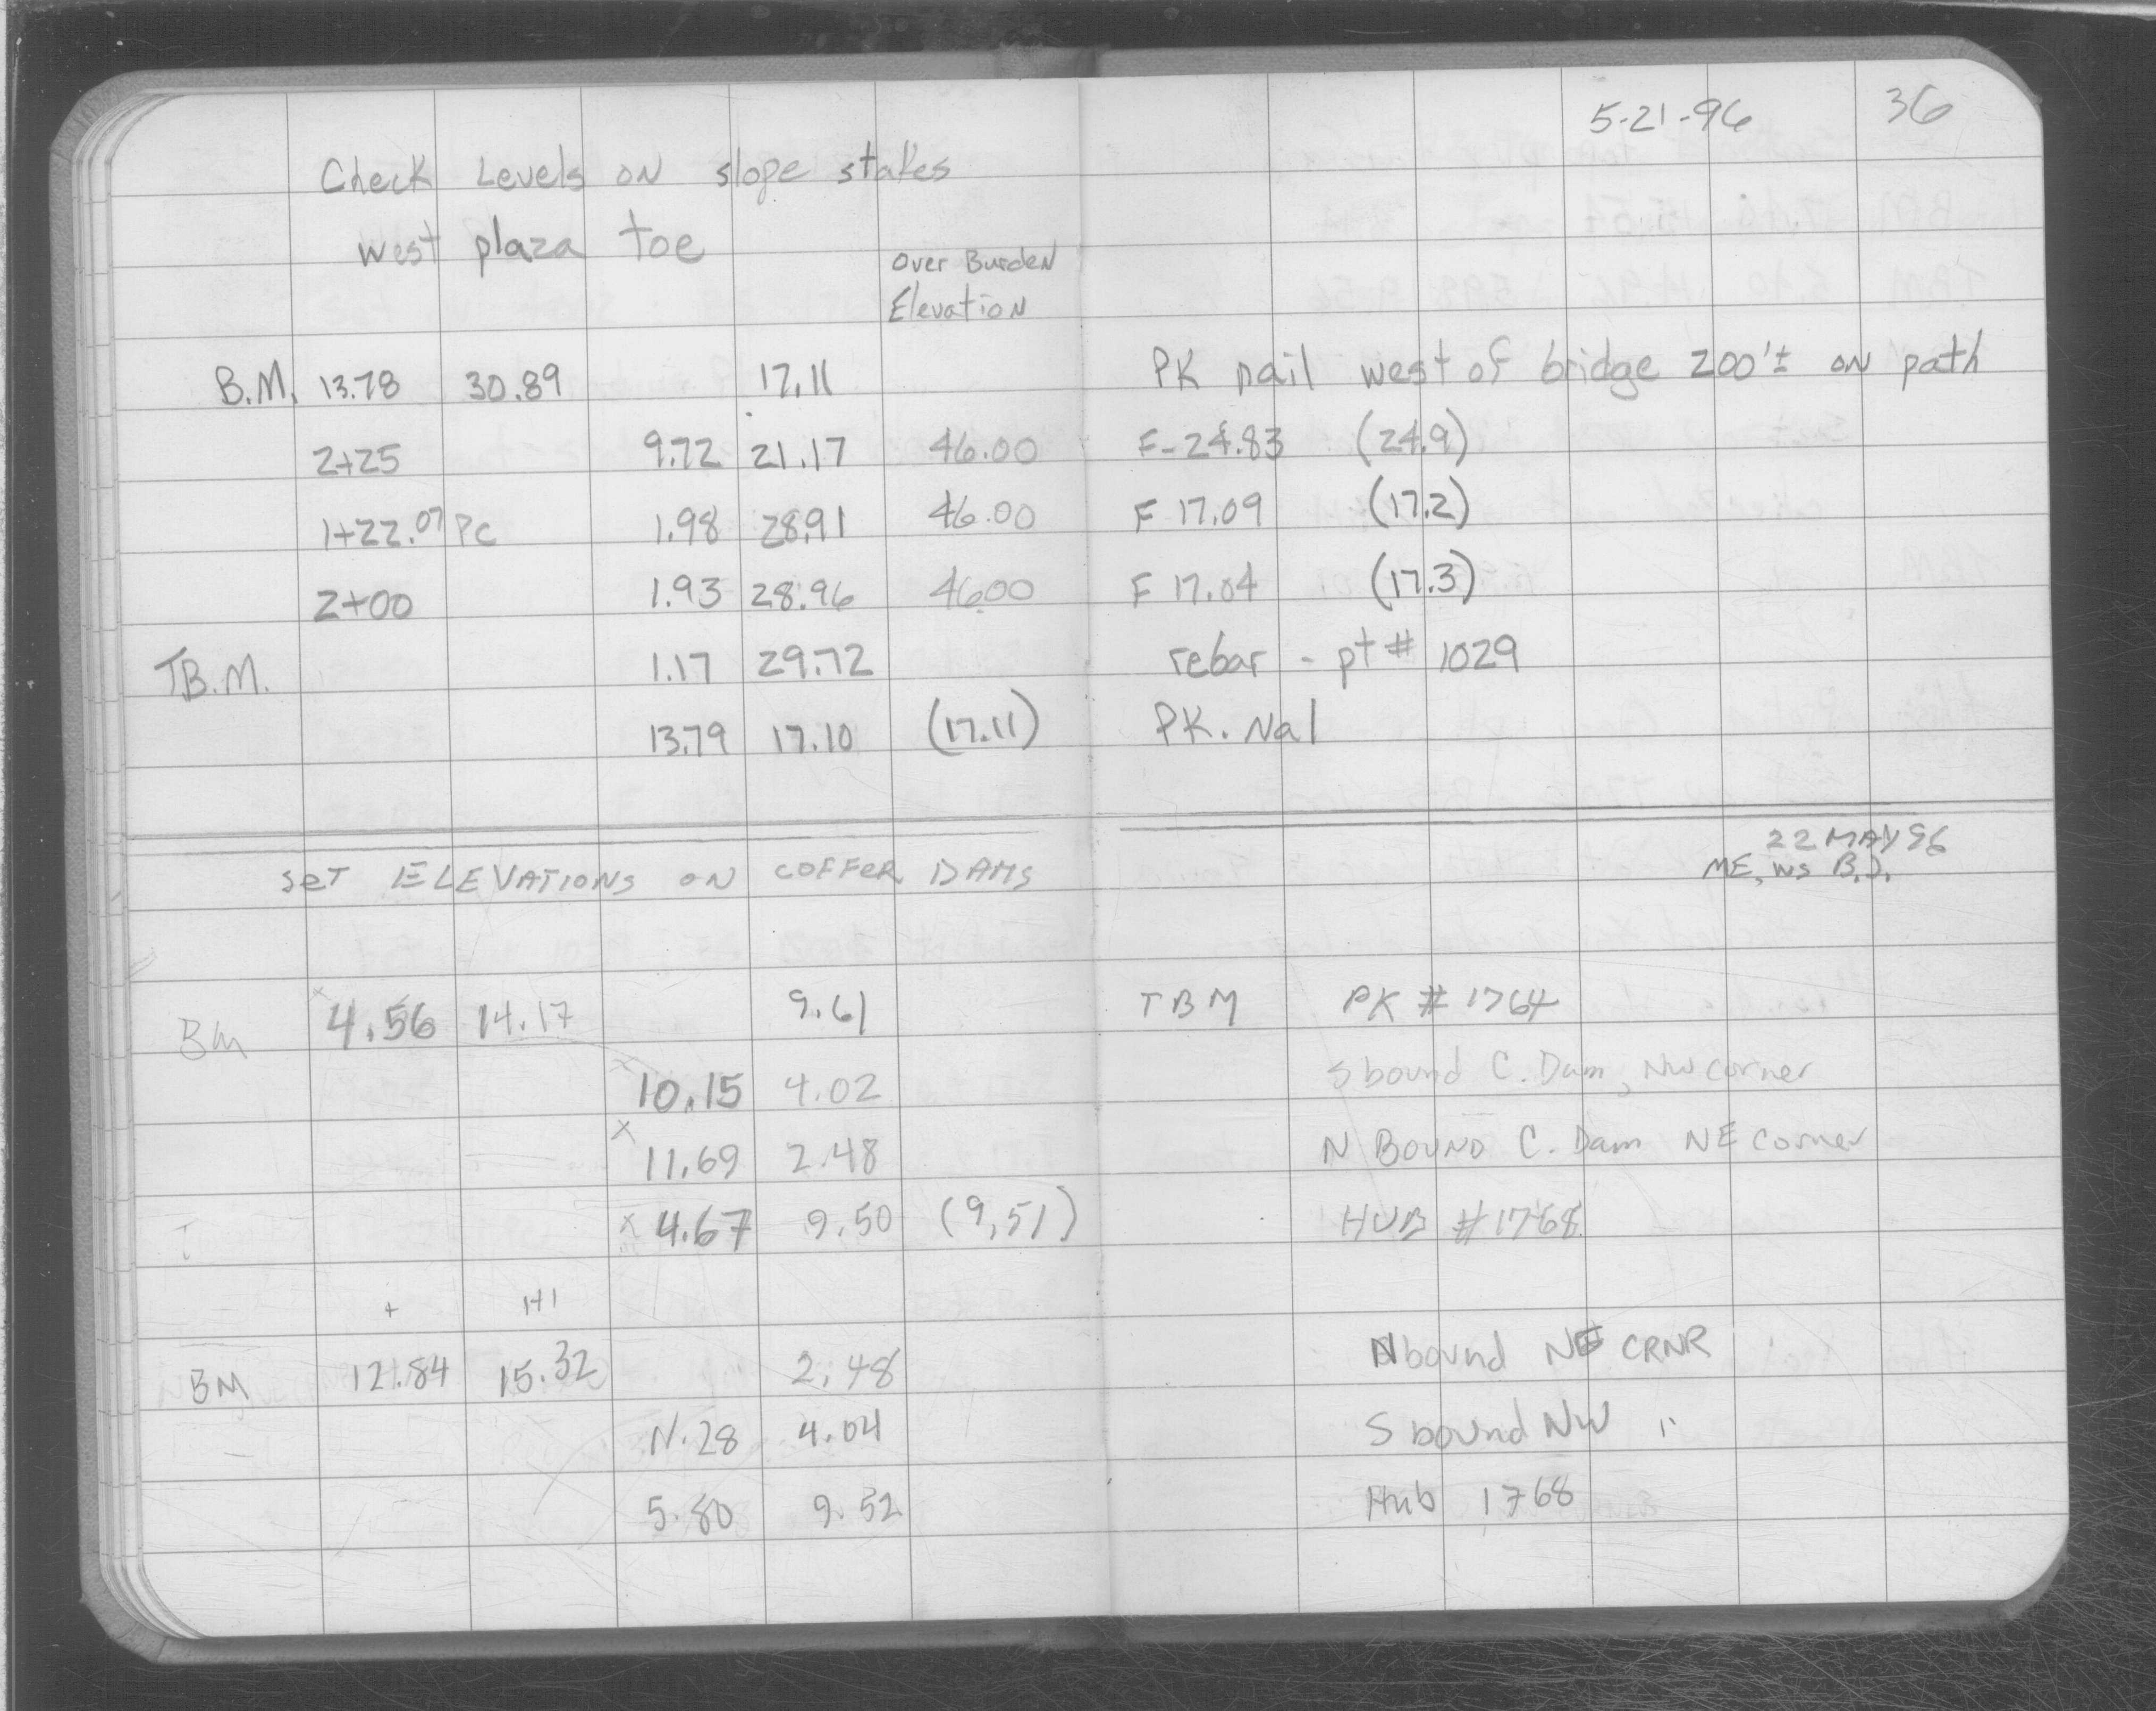 5-21-96 36
Check Levels on slope stakes
west plaza toe
Over Burden
Elevation
B.M. 13.78 30.89 17.11 PK nail west of bridge 200'± on path
2+25 9.72 21.17 46.00 F-24.83 (24.9)
1+22.07 PC 1.98 28.91 46.00 F 17.09 (17.2)
2+00 1.93 28.96 46.00 F 17.04 (17.3)
T.B.M. 1.17 29.72 rebar - pt # 1029
13.79 17.10 (17.11) PK. Nal
22 MAY 96
SET ELEVATIONS ON COFFER DAMS ME, WS B.J.
BM 4.56 14.17 9.61 TBM PK # 1764
10.15 4.02 S bound C. Dam, NW corner
x 11.69 2.48 N BOUND C. Dam NE corner
T x 4.67 9.50 (9.51) HUB #1768
+ HI
BM 12.84 15.32 2.48 Nbound NE CRNR
11.28 4.04 S bound NW "
5.80 9.52 Hub 1768